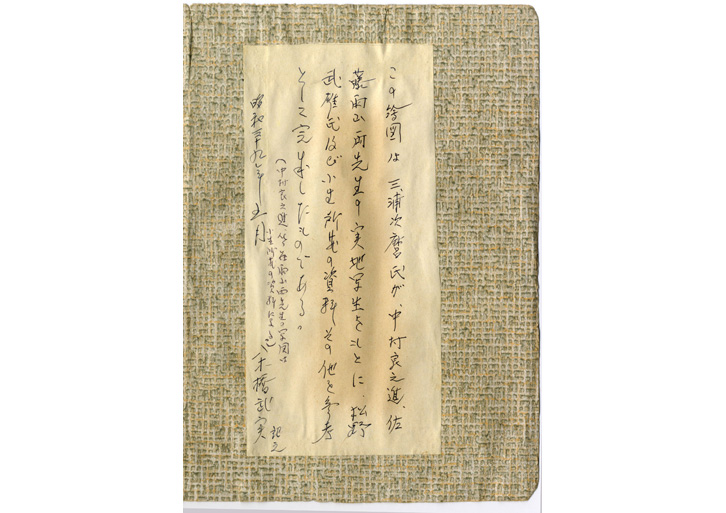 この絵図は三浦次麿氏が、中村良之進、佐
藤雨山両先生の実地写生をもとに、松野
武雄氏及び小生所蔵の資料その他を参考
として完成したものである。
(中村良之進、佐藤雨山両先生の写図は
小生所蔵の資料による)
昭和三十九年五月
木橋武実